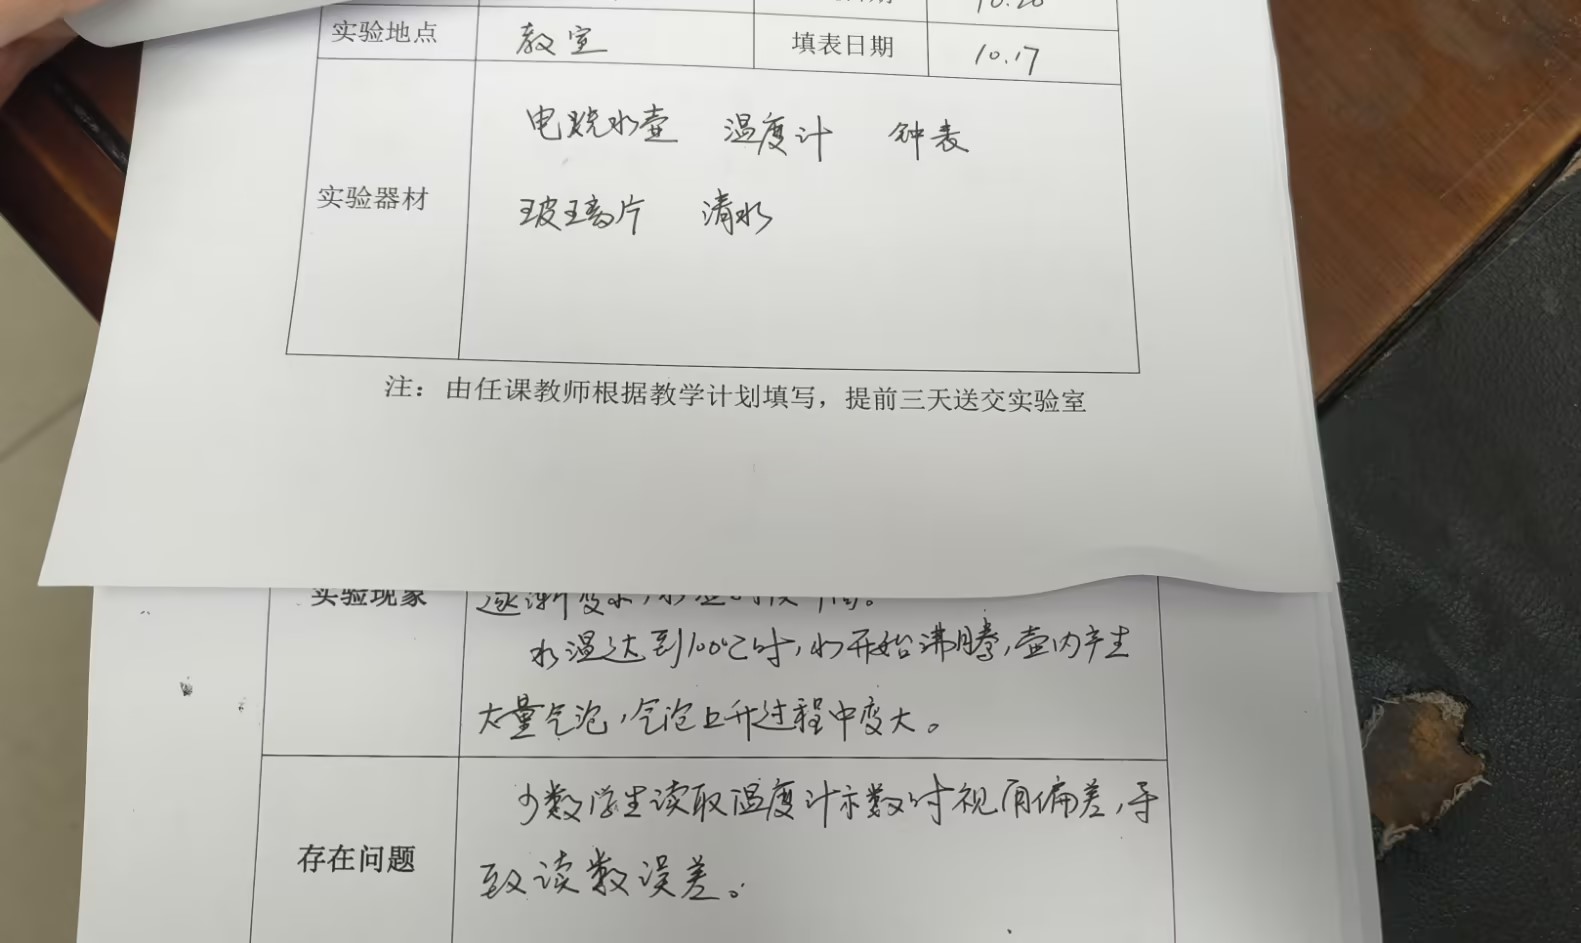 10.20
实验地点 教室 填表日期 10.17
电烧水壶 温度计 钟表
实验器材
玻璃片 清水
注：由任课教师根据教学计划填写，提前三天送交实验室
实验现象
水温达到100℃时，水开始沸腾，壶内产生
大量气泡，气泡上升过程中变大。
少数学生读取温度计示数时视角偏差，导
存在问题
致读数误差。